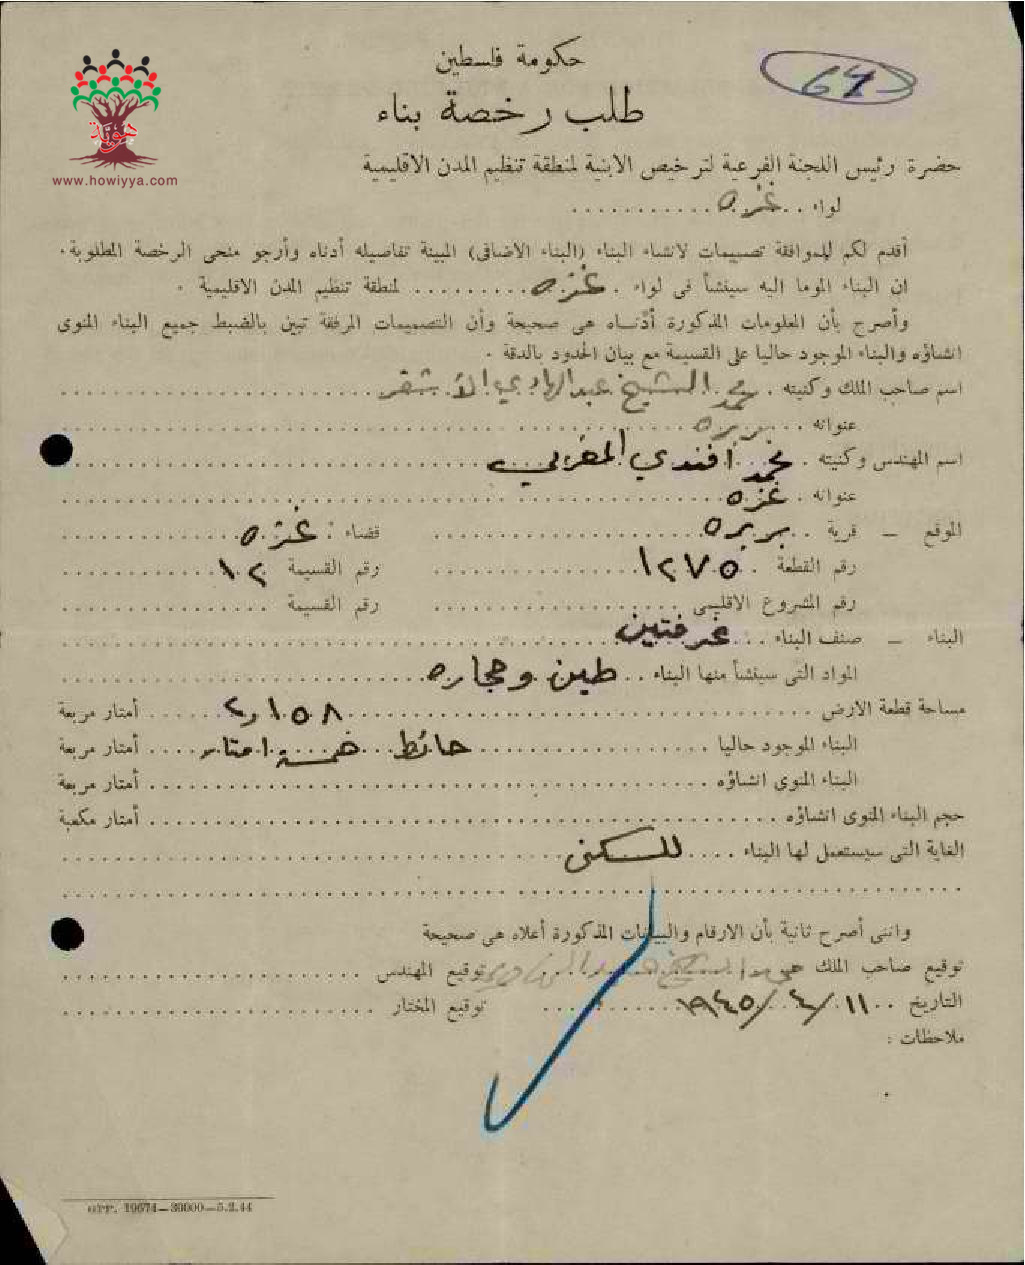 حكومة فلسطين
64
طلب رخصة بناء
هوية
www.howiyya.com
حضرة رئيس اللجنة الفرعية لترخيص الابنية لمنطقة تنظيم المدن الاقليمية
لواء .. غزه ...........
أقدم لكم للموافقة تصميمات لانشاء البناء (البناء الاضافى) المبينة تفاصيله أدناه وأرجو منحى الرخصة المطلوبة.
ان البناء الموما اليه سينشأ فى لواء . غزه ......... لمنطقة تنظيم المدن الاقليمية .
وأصرح بأن المعلومات المذكورة أدناه هى صحيحة وأن التصميمات المرفقة تبين بالضبط جميع البناء المنوى
انشاؤه والبناء الموجود حاليا على القسيمة مع بيان الحدود بالدقة .
اسم صاحب الملك وكنيته . محمد الشيخ عبد الهادي الأشقر
عنوانه ... بربره
اسم المهندس وكنيته . محمد افندي المغربي
عنوانه . غزه
الموقع - قرية .. بربره قضاء : غزه
رقم القطعة . ١٢٧٥ رقم القسيمة ١٢
رقم المشروع الاقليمى ......... رقم القسيمة .........
البناء - صنف البناء ... غرفتين
المواد التى سينشأ منها البناء .. طين وحجاره
مساحة قطعة الارض ......... ٢,١٥٨ ...... أمتار مربعة
البناء الموجود حاليا ......... حائط خمسة امتار .... أمتار مربعة
البناء المنوى انشاؤه ......... أمتار مربعة
حجم البناء المنوى انشاؤه ......... أمتار مكعبة
الغاية التى سيستعمل لها البناء .... للسكن
وانى أصرح ثانية بأن الارقام والبيانات المذكورة أعلاه هى صحيحة
توقيع صاحب الملك محمد الشيخ عبد الهادي توقيع المهندس .........
التاريخ .. ١١/٤/١٩٤٥ ...... توقيع المختار .........
ملاحظات :
GPP. 19674—30000—5.2.44